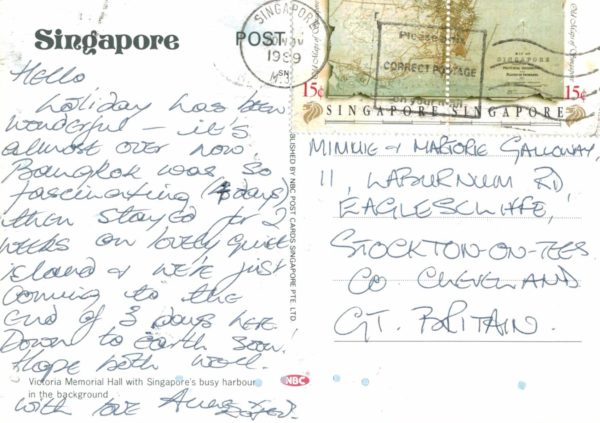 Singapore
POST
SINGAPORE
1989
Please use
CORRECT POSTAGE
on your mail
MAP OF
SINGAPORE
15¢
SINGAPORE
SINGAPORE
15¢
HELLO
Holiday has been
wonderful – it's
almost over now.
Bangkok was so
fascinating (4 days)
then stayed for 2
weeks on lovely quiet
island & we're just
coming to the
end of 3 days here.
Down to earth soon!
Hope both well.
with love
PUBLISHED BY NBC POST CARDS SINGAPORE PTE LTD
MINNIE & MARJORIE GALLOWAY,
11, LABURNUM RD,
EAGLESCLIFFE,
STOCKTON-ON-TEES
CO CLEVELAND
GT. BRITAIN.
Victoria Memorial Hall with Singapore's busy harbour
in the background
NBC